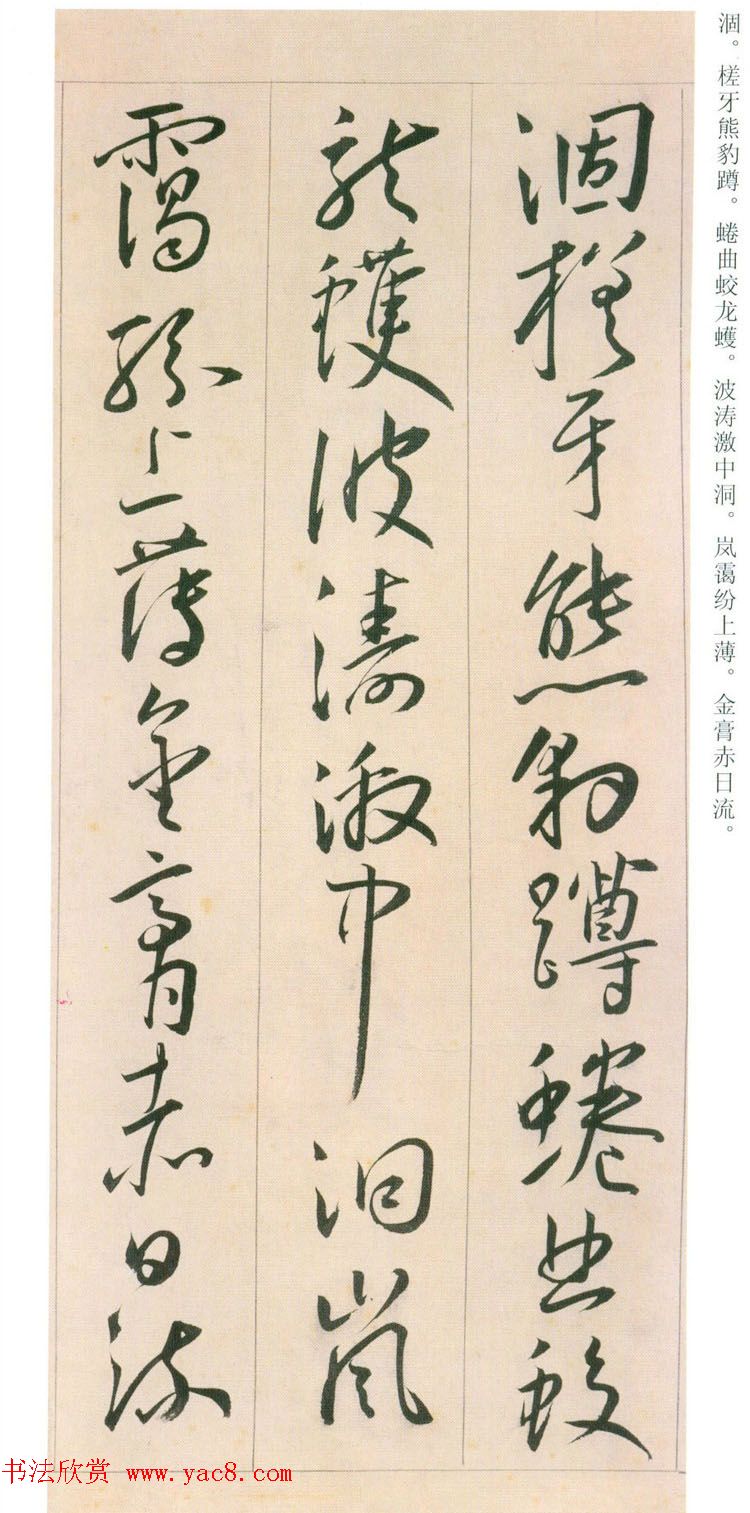 涸。槎牙熊豹蹲。蜷曲蛟龙蠖。波涛激中洞。岚霭纷上薄。金膏赤日流。
涸槎牙熊豹蹲蜷曲蛟
龍蠖波濤激中洞嵐
靄紛上薄金膏赤日流
书法欣赏 www.yac8.com